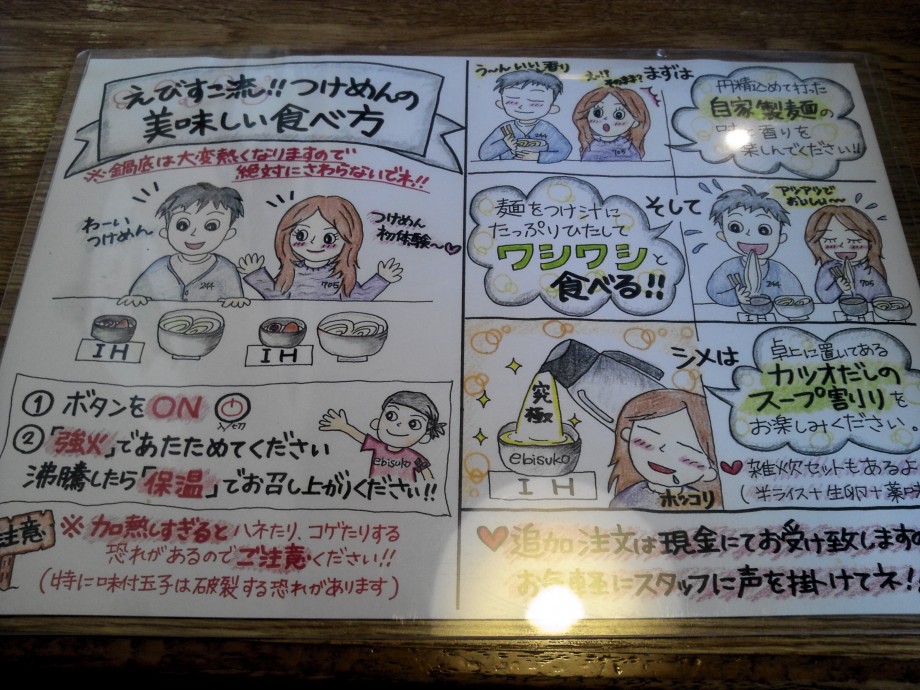 えびすこ流!!つけめんの
美味しい食べ方
※鍋底は大変熱くなりますので
絶対にさわらないでネ!!
わーい
つけめん
つけめん
初体験〜♥
244
705
IH
IH
① ボタンをON
② 「強火」であたためてください
沸騰したら「保温」でお召し上がりください!!
ebisuko
注意
※加熱しすぎるとハネたり、コゲたりする
恐れがあるのでご注意ください!!
(特に味付玉子は破裂する恐れがあります)
う〜んいい香り
えっ!?
そのまま?
244
705
まずは
丹精込めて打った
自家製麺の
味と香りを
楽しんでください!!
麺をつけ汁に
たっぷりひたして
ワシワシと
食べる!!
そして
アツアツで
おいしい〜
244
705
究極
ebisuko
IH
ホッコリ
シメは
卓上に置いてある
カツオだしの
スープ割りを
お楽しみください。
♥雑炊セットもあるよ
(半ライス+生卵+薬味
♥追加注文は現金にてお受け致しますの
お気軽にスタッフに声を掛けてネ!